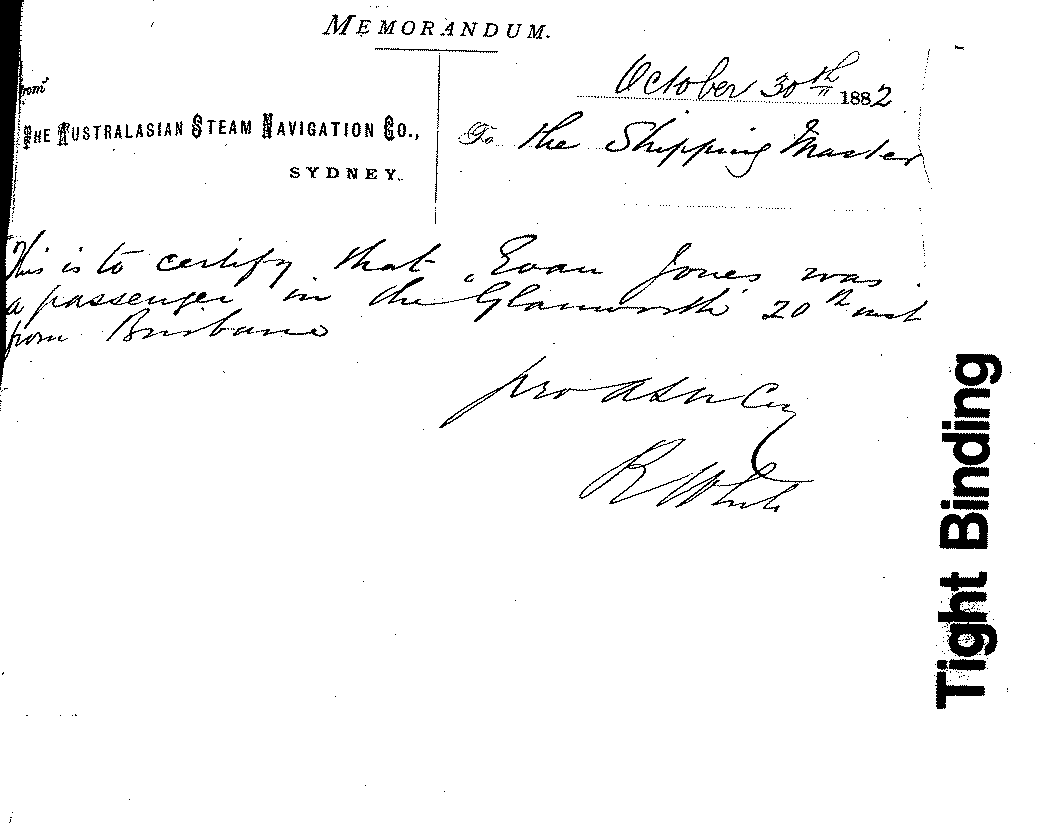 MEMORANDUM.
October 30th 1882
From
THE AUSTRALASIAN STEAM NAVIGATION CO.,
SYDNEY.
To the Shipping Master
This is to certify that Evan Jones was
a passenger in the "Glamworth" 20th inst
from Brisbane
pro A S N Coy
R White
Tight Binding